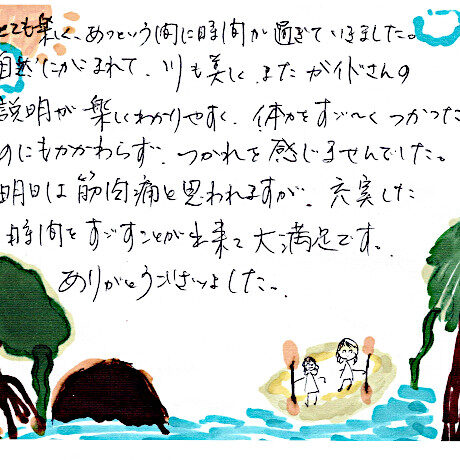 とても楽しく、あっという間に時間が過ぎていきました。
自然にかこまれて、川も美しく、またガイドさんの
説明が楽しくわかりやすく、体力をすご〜くつかった
のにもかかわらず、つかれを感じませんでした。
明日は筋肉痛と思われますが、充実した
時間をすごすことが出来て大満足です。
ありがとうございました。